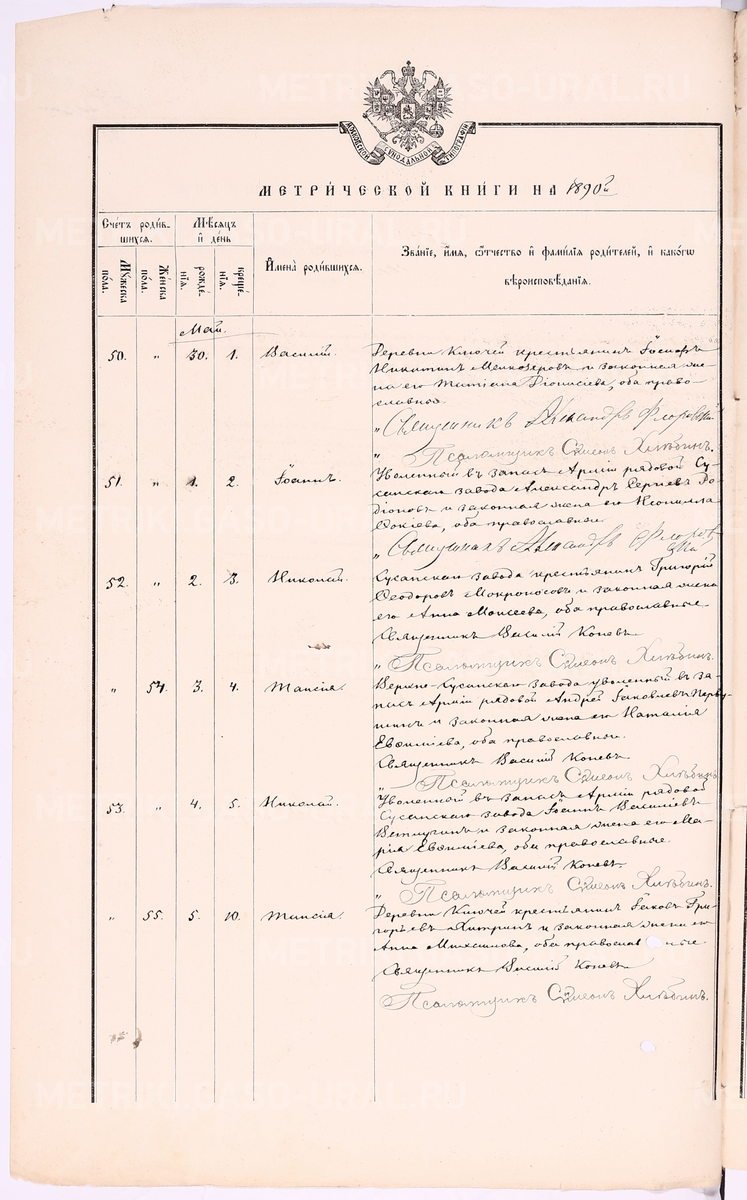 МОСКОВСКОЙ СѴНОДАЛЬНОЙ ТИПОГРАФІИ
МЕТРИ́ЧЕСКОЙ КНИ́ГИ НА 1890 й
Сче́тъ роди́в-
шихся.
Мѣ́сяцъ
и҆ де́нь
И҆мена̀ роди́вшихся.
Зва́нїе, и҆́мя, ѻ҆́тчество и҆ фами́лїя роди́телей, и҆ како́гѡ
вѣроисповѣ́данїя.
Мꙋ́жеска
по́ла.
Же́нска
по́ла.
рожде́-
нїя.
креще́-
нїя.
Май.
50. „ 30. 1. Василій. Деревни Ключей крестьянинъ Іосифъ
Никитинъ Мелкозеровъ и законная же-
на его Татіана Діонисіева, оба право-
славные.
„ Священникъ Александръ Флоровскій
„ Псаломщикъ Сѵмеонъ Хлѣбинъ.
51. „ 1. 2. Іоаннъ. Уволенный въ запасъ Арміи рядовой Су-
санскаго завода Александръ Сергіевъ Ро-
діоновъ и законная жена его Неонилла
Фокіева, оба православные.
„ Священникъ Александръ Флоров-
скій
52. „ 2. 3. Николай. Сусанскаго завода крестьянинъ Григорій
Феодоровъ Мокроносовъ и законная жена
его Анна Моисеева, оба православные
Священникъ Василій Коневъ
„ Псаломщикъ Сѵмеонъ Хлѣбинъ.
„ 54. 3. 4. Таисія. Верхно-Сусанскаго завода уволенный въ за-
пасъ Арміи рядовой Андрей Іаковлевъ Перву-
шинъ и законная жена его Наталія
Евѳиміева, оба православные.
Священникъ Василій Коневъ
„ Псаломщикъ Сѵмеонъ Хлѣбинъ
53. „ 4. 5. Николай. Уволенный въ запасъ Арміи рядовой
Сусанскаго завода Іоаннъ Василіевъ
и законная жена его Ма-
рія Евѳиміева, оба православные.
Священникъ Василій Коневъ.
„ Псаломщикъ Сѵмеонъ Хлѣбинъ.
„ 55. 5. 10. Таисія. Деревни Ключей крестьянинъ Іаковъ Гри-
горьевъ Хитринъ и законная жена его
Анна Михаилова, оба православные.
Священникъ Василій Коневъ
Псаломщикъ Сѵмеонъ Хлѣбинъ.